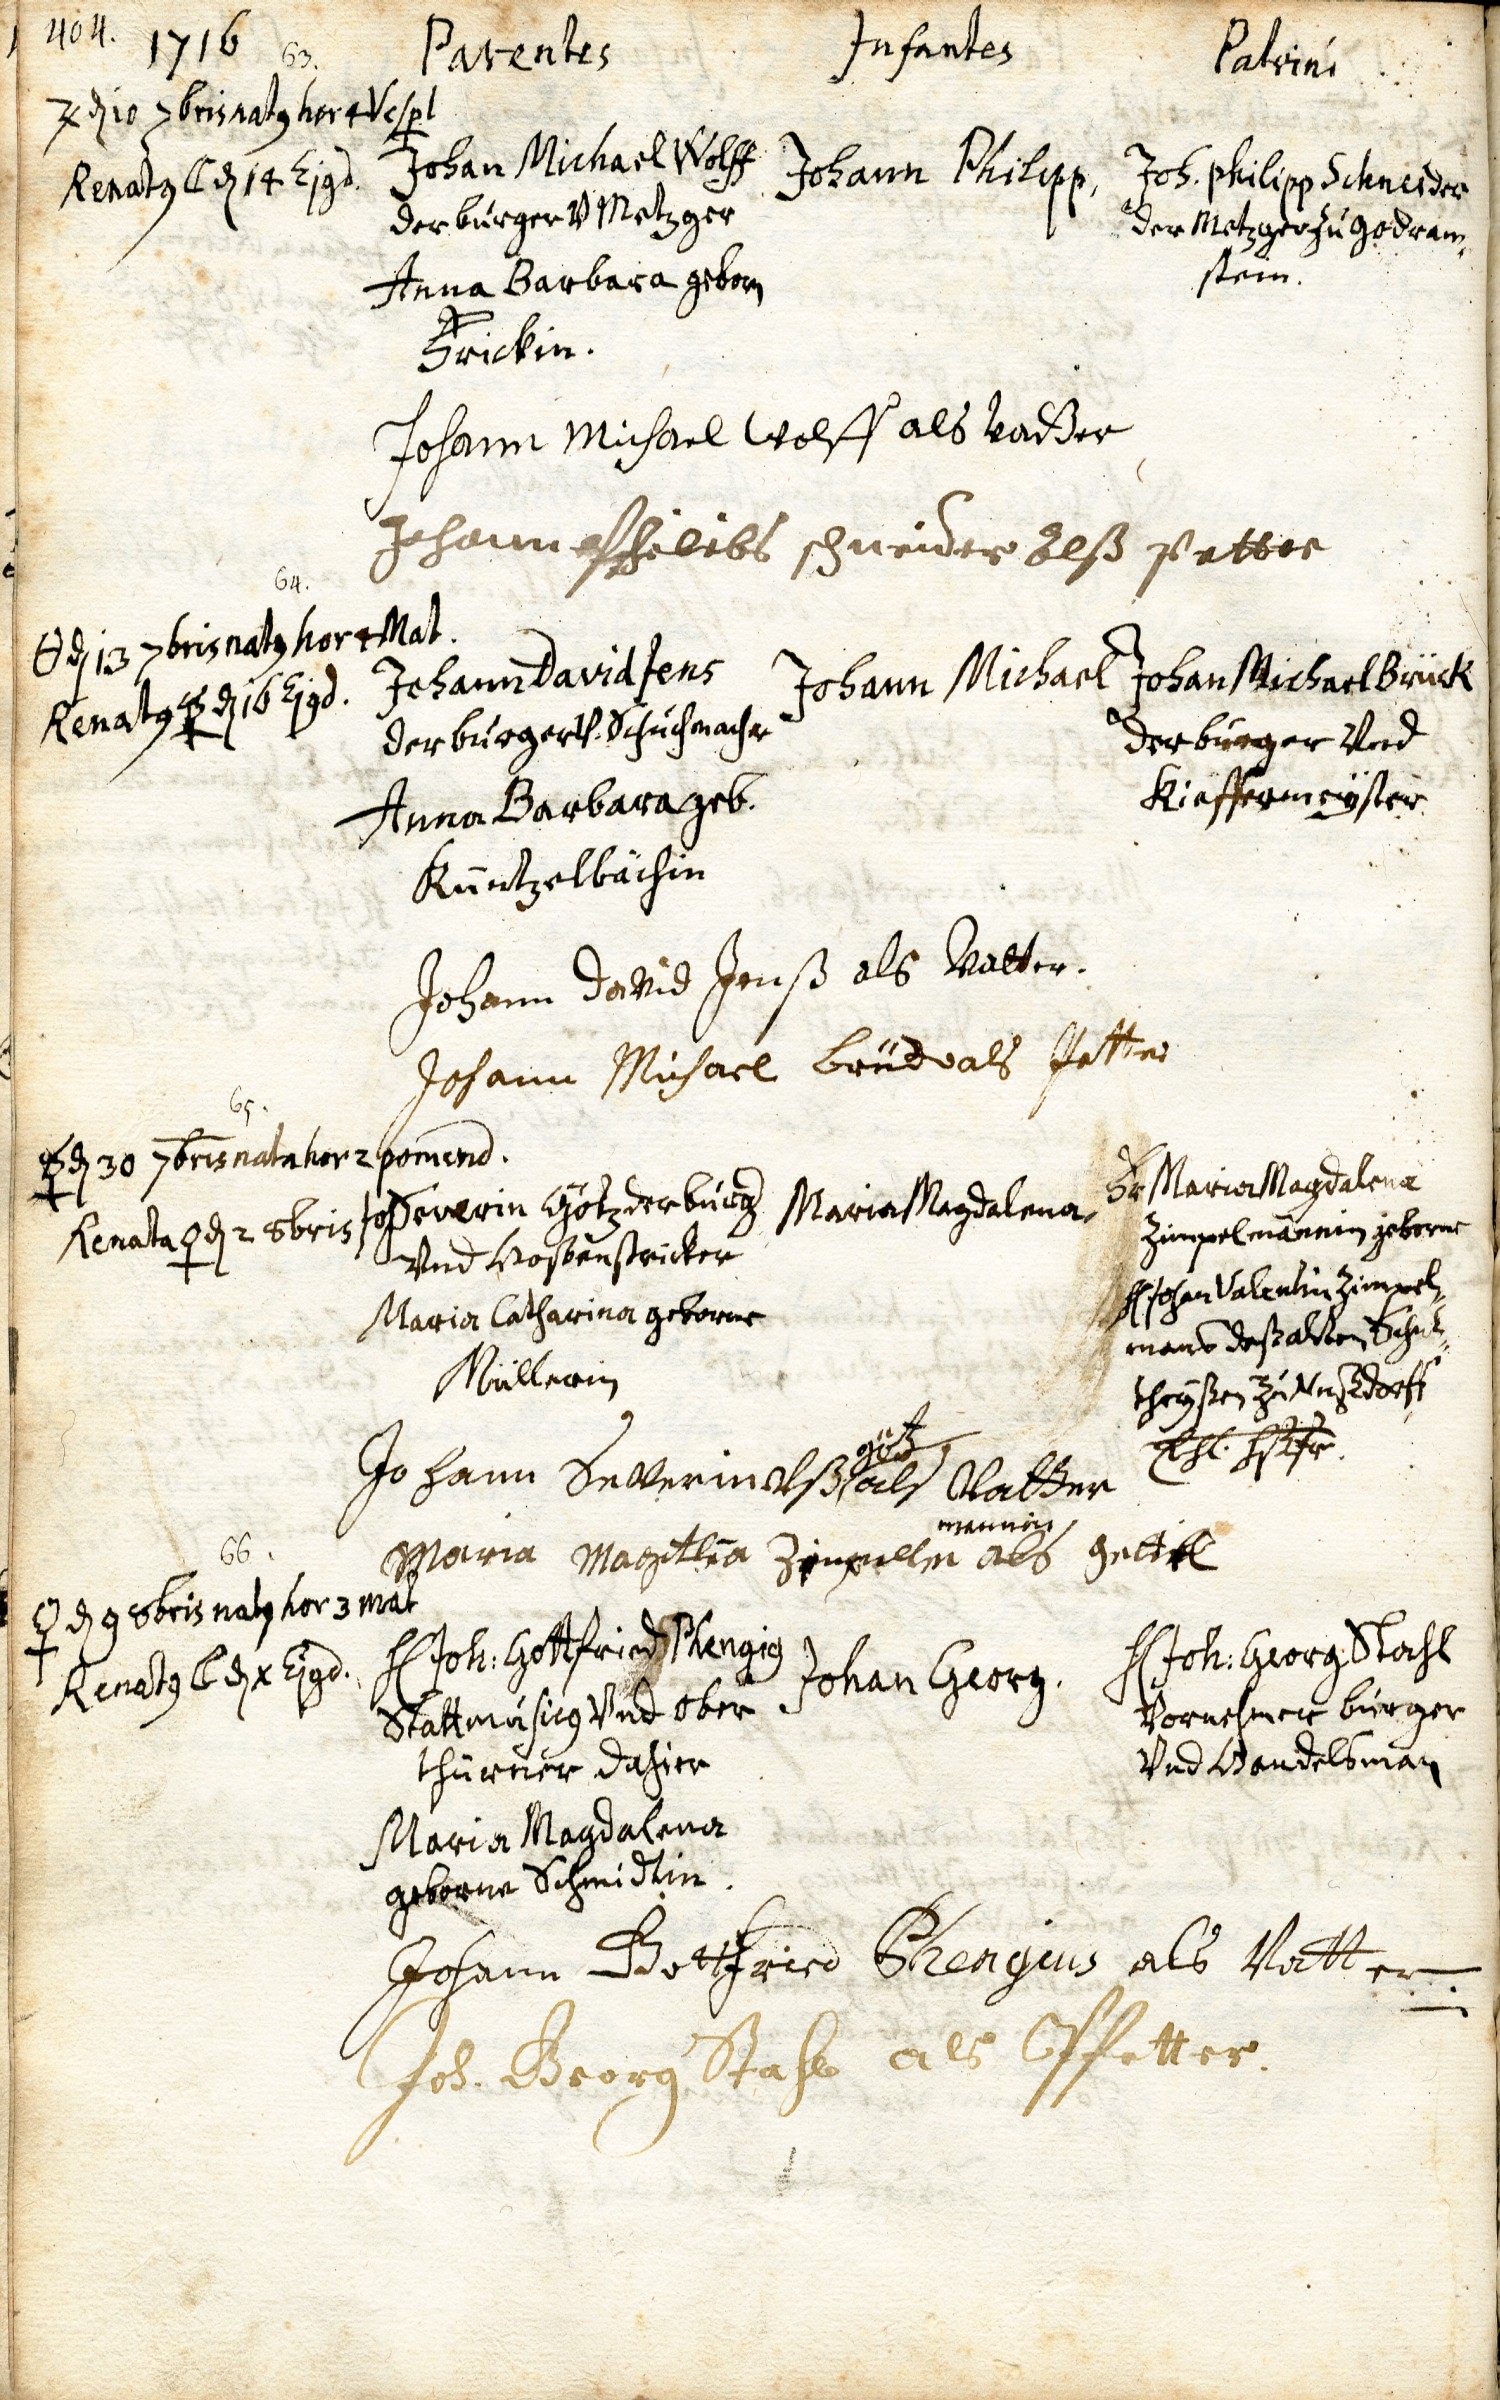 404. 1716 Parentes Infantes Patrini
63.
d 10 7bris natq hor 4 Vesp
Renatq d 14 Ejqd.
Johan Michael Wolff
der burger V Metzger
Anna Barbara geborn
Frickin.
Johann Philipp,
Joh. Philipp Schneider
der Metzger zu Godram-
stein.
Johann Michael Wolff als Vadder
Johann Philibs schneider Alß Petter
64.
d 13 7bris natq hor 4 Mat.
Renatq d 16 Ejqd.
Johann David Jens
der burger V. Schuhmacher
Anna Barbara geb.
Küntzelbächin
Johann Michael
Johan Michael Brück
der burger Vnd
Kieffermeyster
Johann David Jenß als Vatter.
Johann Michael als Petter
65.
d 30 7bris nata hor 2 pomerid.
Renata d 2 8bris
Joh Severin Götz der burg
Vnd Hoßenstricker
Maria Catharina geborne
Müllerin
Maria Magdalena,
Fr Maria Magdalena
Zimpelmännin geborne
H Johan Valentin Zimpel-
mans deß alten Schul-
theyßen zu Nußdorff
Ehl. Hßfr.
Johann Severin götz als Vatter
Maria Zimpellm mannin als gettel
66.
d 9 8bris natq hor 3 mat
Renatq d X Ejqd.
H Joh: Gottfried Phengiq
Stattmusicq Vnd Ober
thürner dahier
Maria Magdalena
geborne Schmidtin.
Johan Georg.
H Joh: Georg Stahl
Vornehmer burger
Vnd Handelsman
Johann Gottfried Phengius als Vatter
Joh. Georg Stahl als Pfetter.